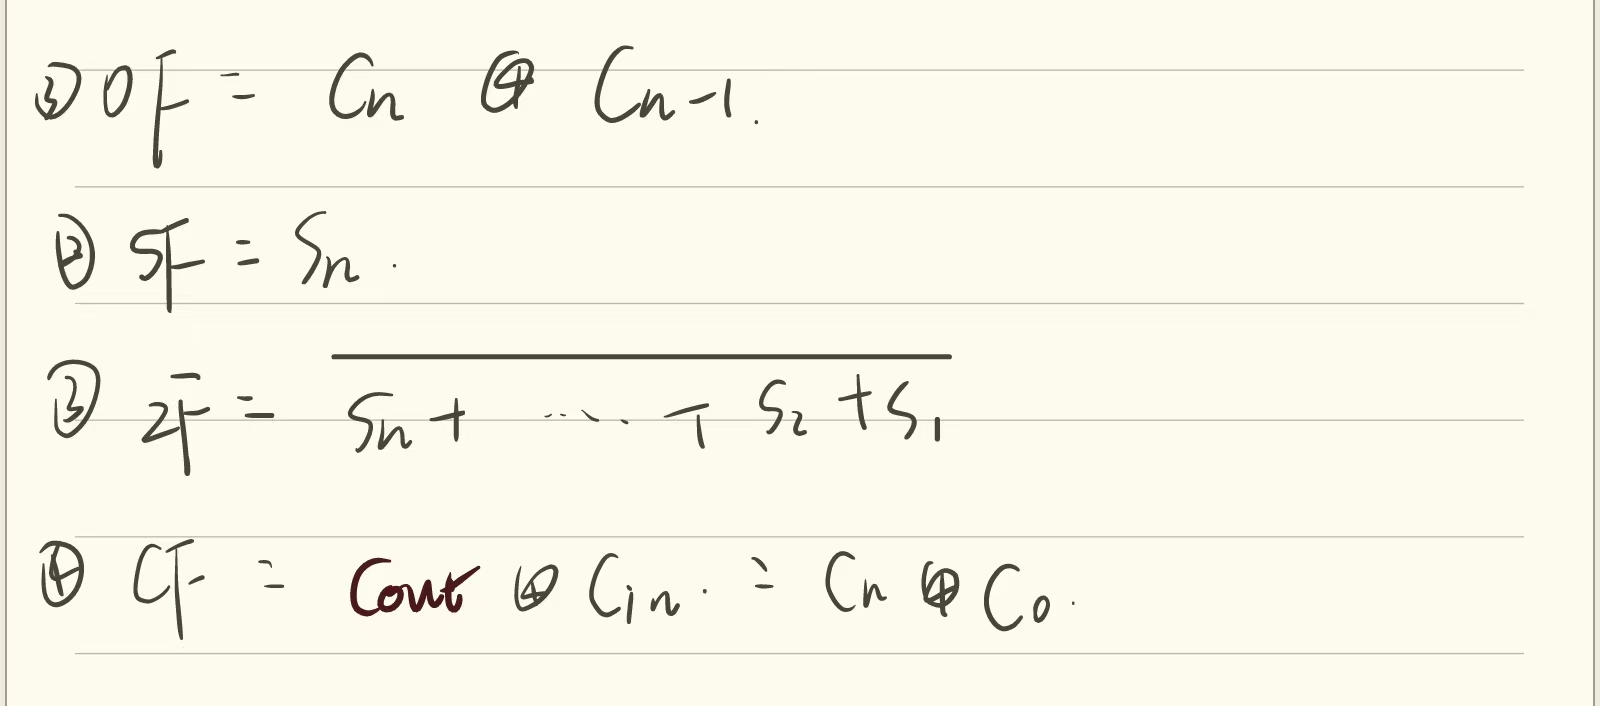 ③ OF = Cn ⊕ Cn-1.
② SF = Sn.
③ ZF = \overline{Sn + ..... + S2 + S1}
④ CF = Cout ⊕ Cin. = Cn ⊕ C0.